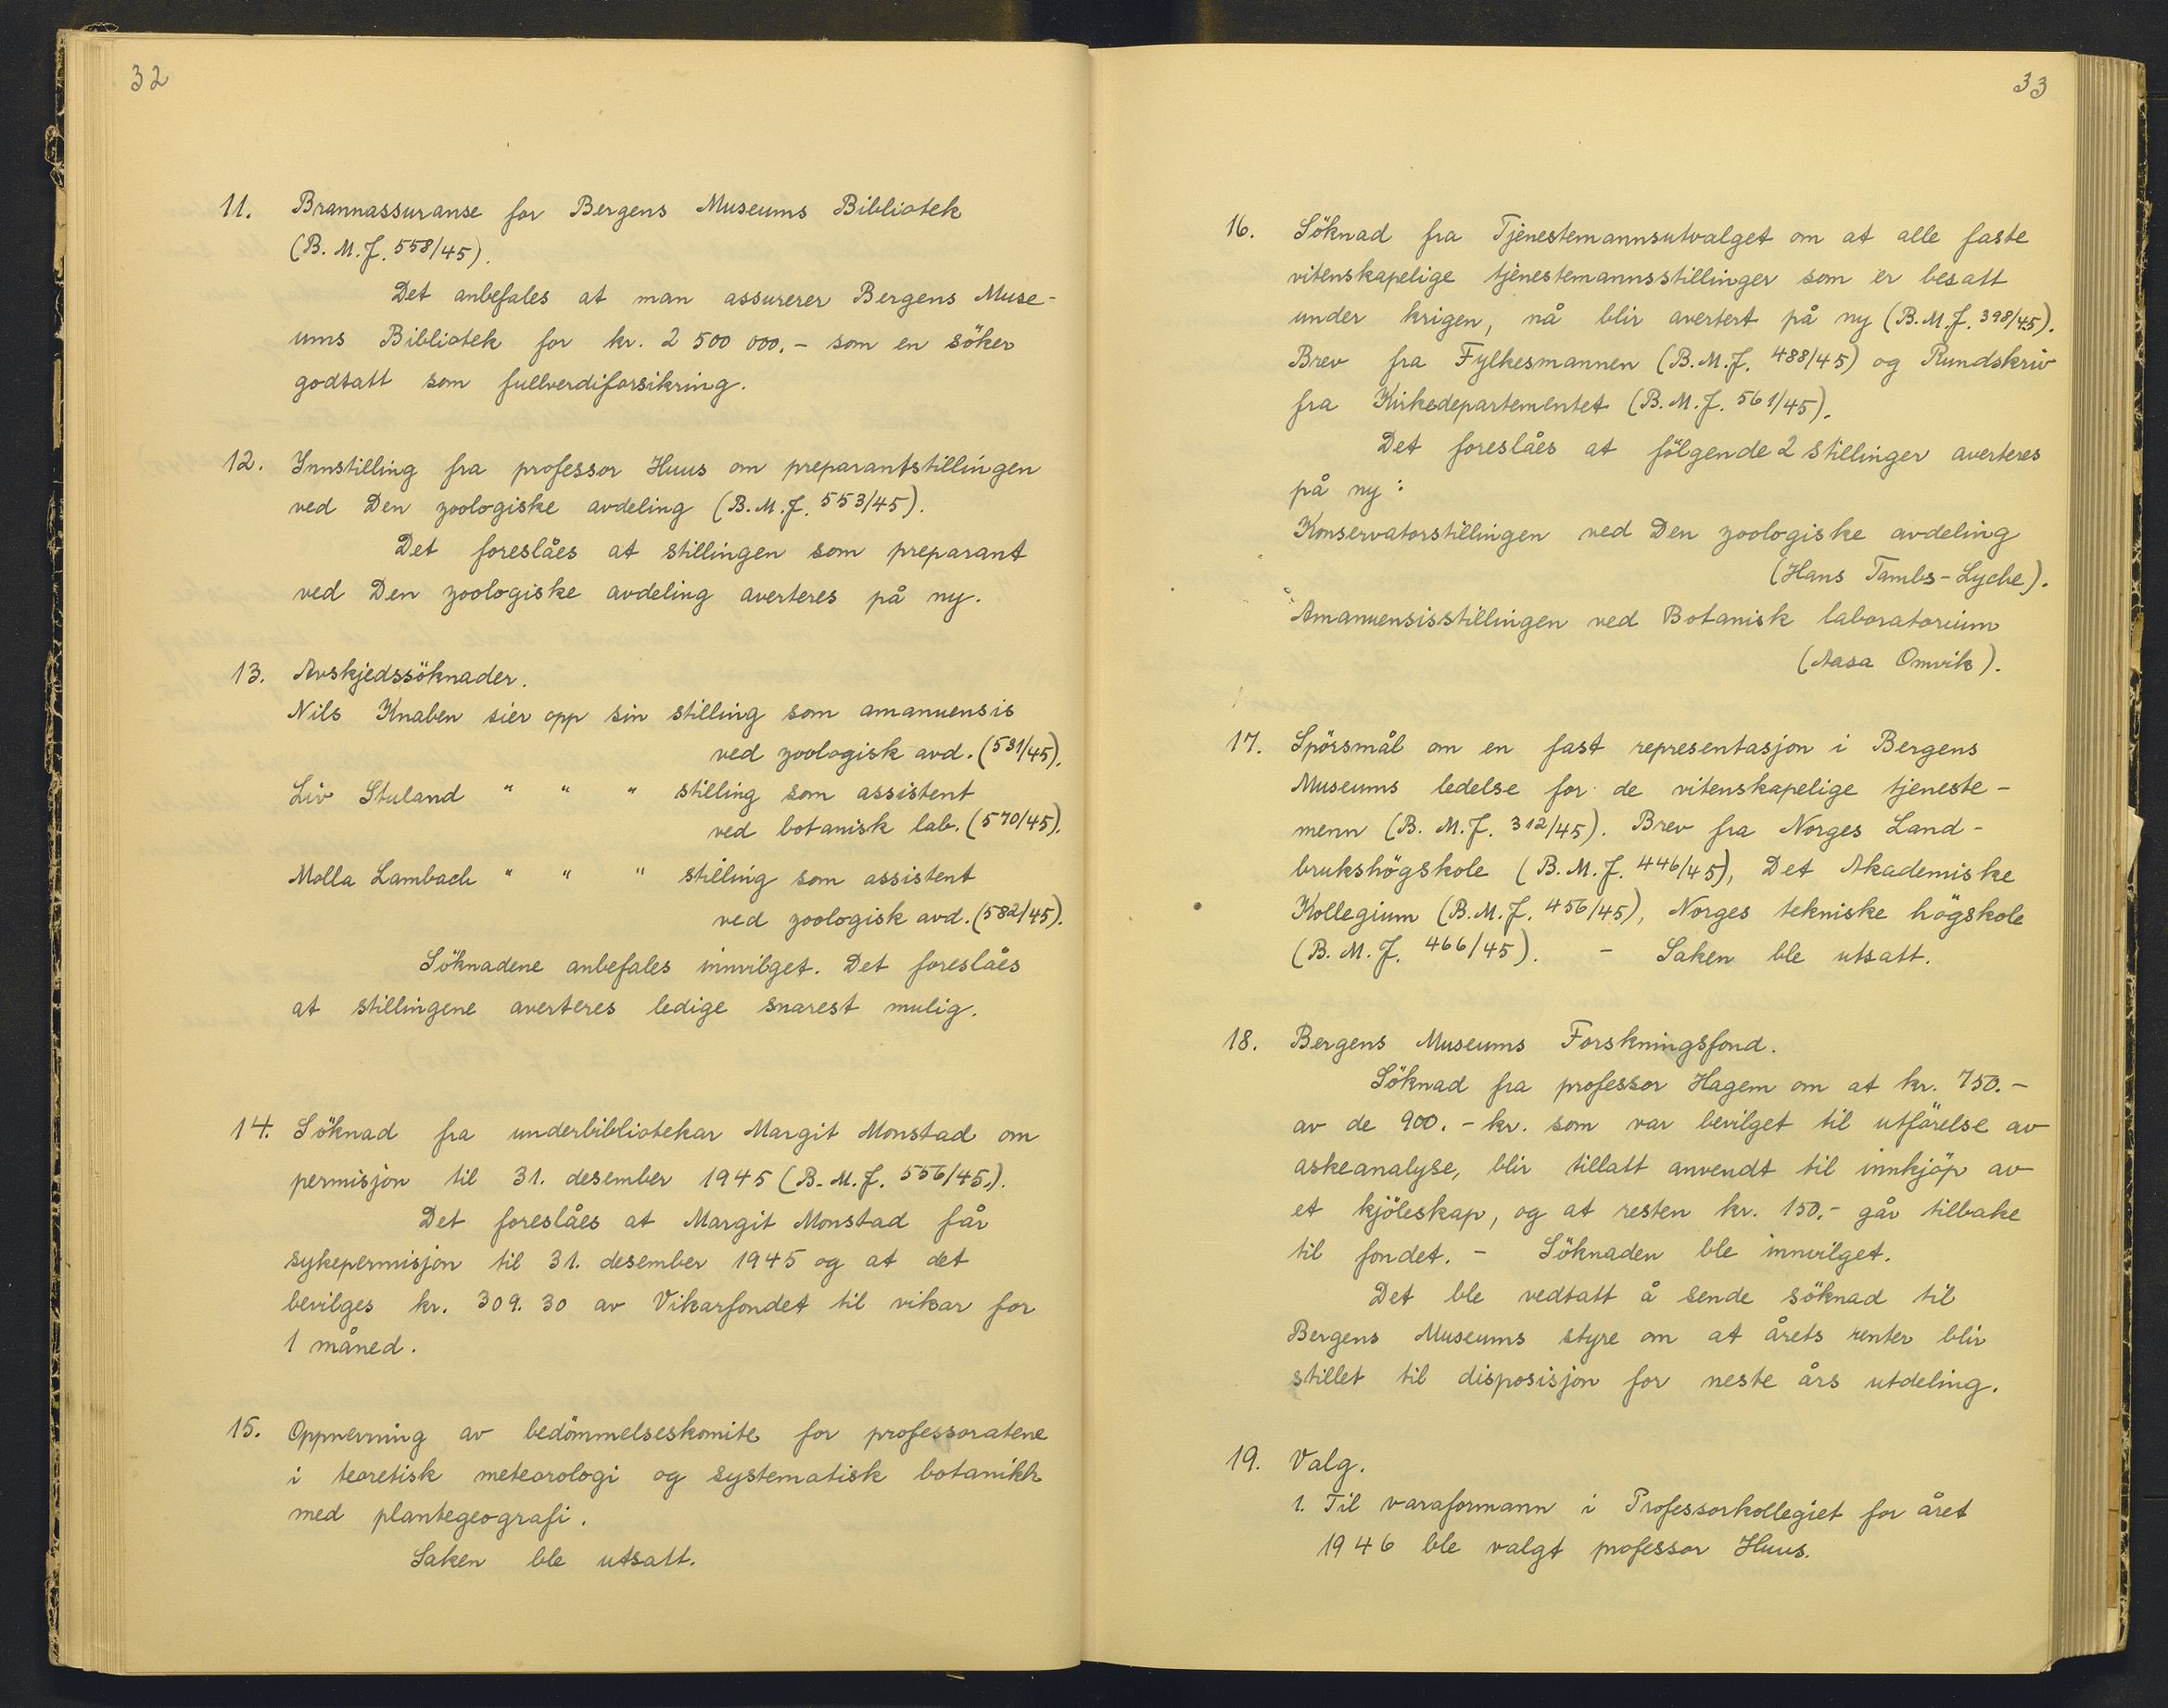 32
11. Brannassuranse for Bergens Museums Bibliotek
(B.M.J. 558/45).
Det anbefales at man assurerer Bergens Muse-
ums Bibliotek for kr. 2 500 000.- som en söker
godtatt som fullverdiforsikring.
12. Innstilling fra professor Huus om preparantstillingen
ved Den zoologiske avdeling (B.M.J. 553/45).
Det foreslåes at stillingen som preparant
ved Den zoologiske avdeling averteres på ny.
13. Avskjedssöknader.
Nils Knaben sier opp sin stilling som amanuensis
ved zoologisk avd. (531/45).
Liv Stuland " " " stilling som assistent
ved botanisk lab. (570/45).
Molla Lambach " " " stilling som assistent
ved zoologisk avd. (582/45).
Söknadene anbefales innvilget. Det foreslåes
at stillingene averteres ledige snarest mulig.
14. Söknad fra underbibliotekar Margit Monstad om
permisjon til 31. desember 1945 (B.M.J. 556/45.).
Det foreslåes at Margit Monstad får
sykepermisjon til 31. desember 1945 og at det
bevilges kr. 309.30 av Vikarfondet til vikar for
1 måned.
15. Oppnevning av bedömmelseskomite for professoratene
i teoretisk meteorologi og systematisk botanikk
med plantegeografi.
Saken ble utsatt.
33
16. Söknad fra Tjenestemannsutvalget om at alle faste
vitenskapelige tjenestemannsstillinger som er besatt
under krigen, nå blir avertert på ny (B.M.J. 398/45).
Brev fra Fylkesmannen (B.M.J. 488/45) og Rundskriv
fra Kirkedepartementet (B.M.J. 561/45).
Det foreslåes at fölgende 2 stillinger averteres
på ny:
Konservatorstillingen ved Den zoologiske avdeling
(Hans Tambs-Lyche).
Amanuensisstillingen ved Botanisk laboratorium
(Aasa Omvik).
17. Spörsmål om en fast representasjon i Bergens
Museums ledelse for de vitenskapelige tjeneste-
menn (B.M.J. 312/45). Brev fra Norges Land-
brukshögskole (B.M.J. 446/45), Det Akademiske
Kollegium (B.M.J. 456/45), Norges tekniske högskole
(B.M.J. 466/45). - Saken ble utsatt.
18. Bergens Museums Forskningsfond.
Söknad fra professor Hagem om at kr. 750.-
av de 900.- kr. som var bevilget til utförelse av
askeanalyse, blir tillatt anvendt til innkjöp av
et kjöleskap, og at resten kr. 150.- går tilbake
til fondet. - Söknaden ble innvilget.
Det ble vedtatt å sende söknad til
Bergens Museums styre om at årets renter blir
stillet til disposisjon for neste års utdeling.
19. Valg.
1. Til varaformann i Professorkollegiet for året
1946 ble valgt professor Huus.